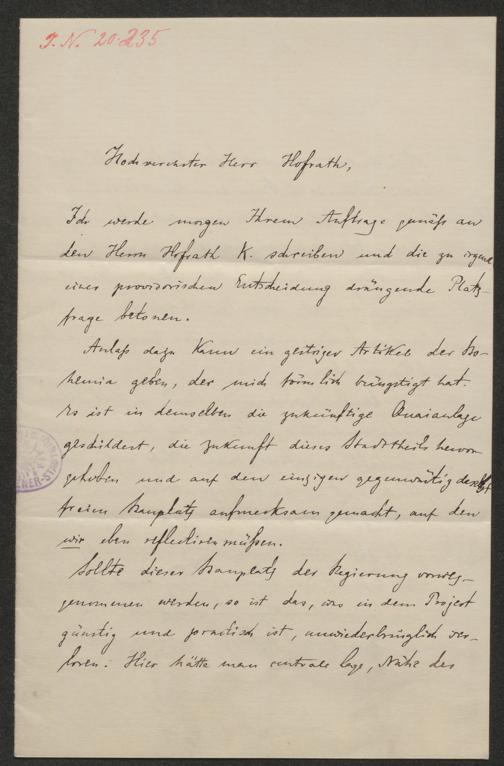 J. N. 20.235
Hochverehrter Herr Hofrath,
Ich werde morgen Ihrem Auftrage gemäß an
den Herrn Hofrath K. schreiben und die zu irgend
einer provisorischen Entscheidung drängende Platz-
frage betonen.
Anlaß dazu kann ein gestriger Artikel der Bo-
hemia geben, der mich förmlich beängstigt hat.
Es ist in demselben die zukünftige Quaianlage
geschildert, die Zukunft dieses Stadttheils hervor
gehoben und auf den einzigen gegenwärtig daselbst
freien Bauplatz aufmerksam gemacht, auf den
wir eben reflectiren müßen.
Sollte dieser Bauplatz der Regierung vorweg-
genommen werden, so ist das, was in dem Project
günstig und practisch ist, unwiederbringlich ver-
loren. Hier hätte man centrale Lage, Nähe des